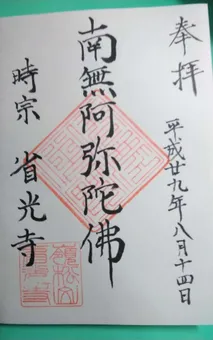 奉拝
平成廿九年八月十四日
南無阿弥陀佛
時宗 省光寺